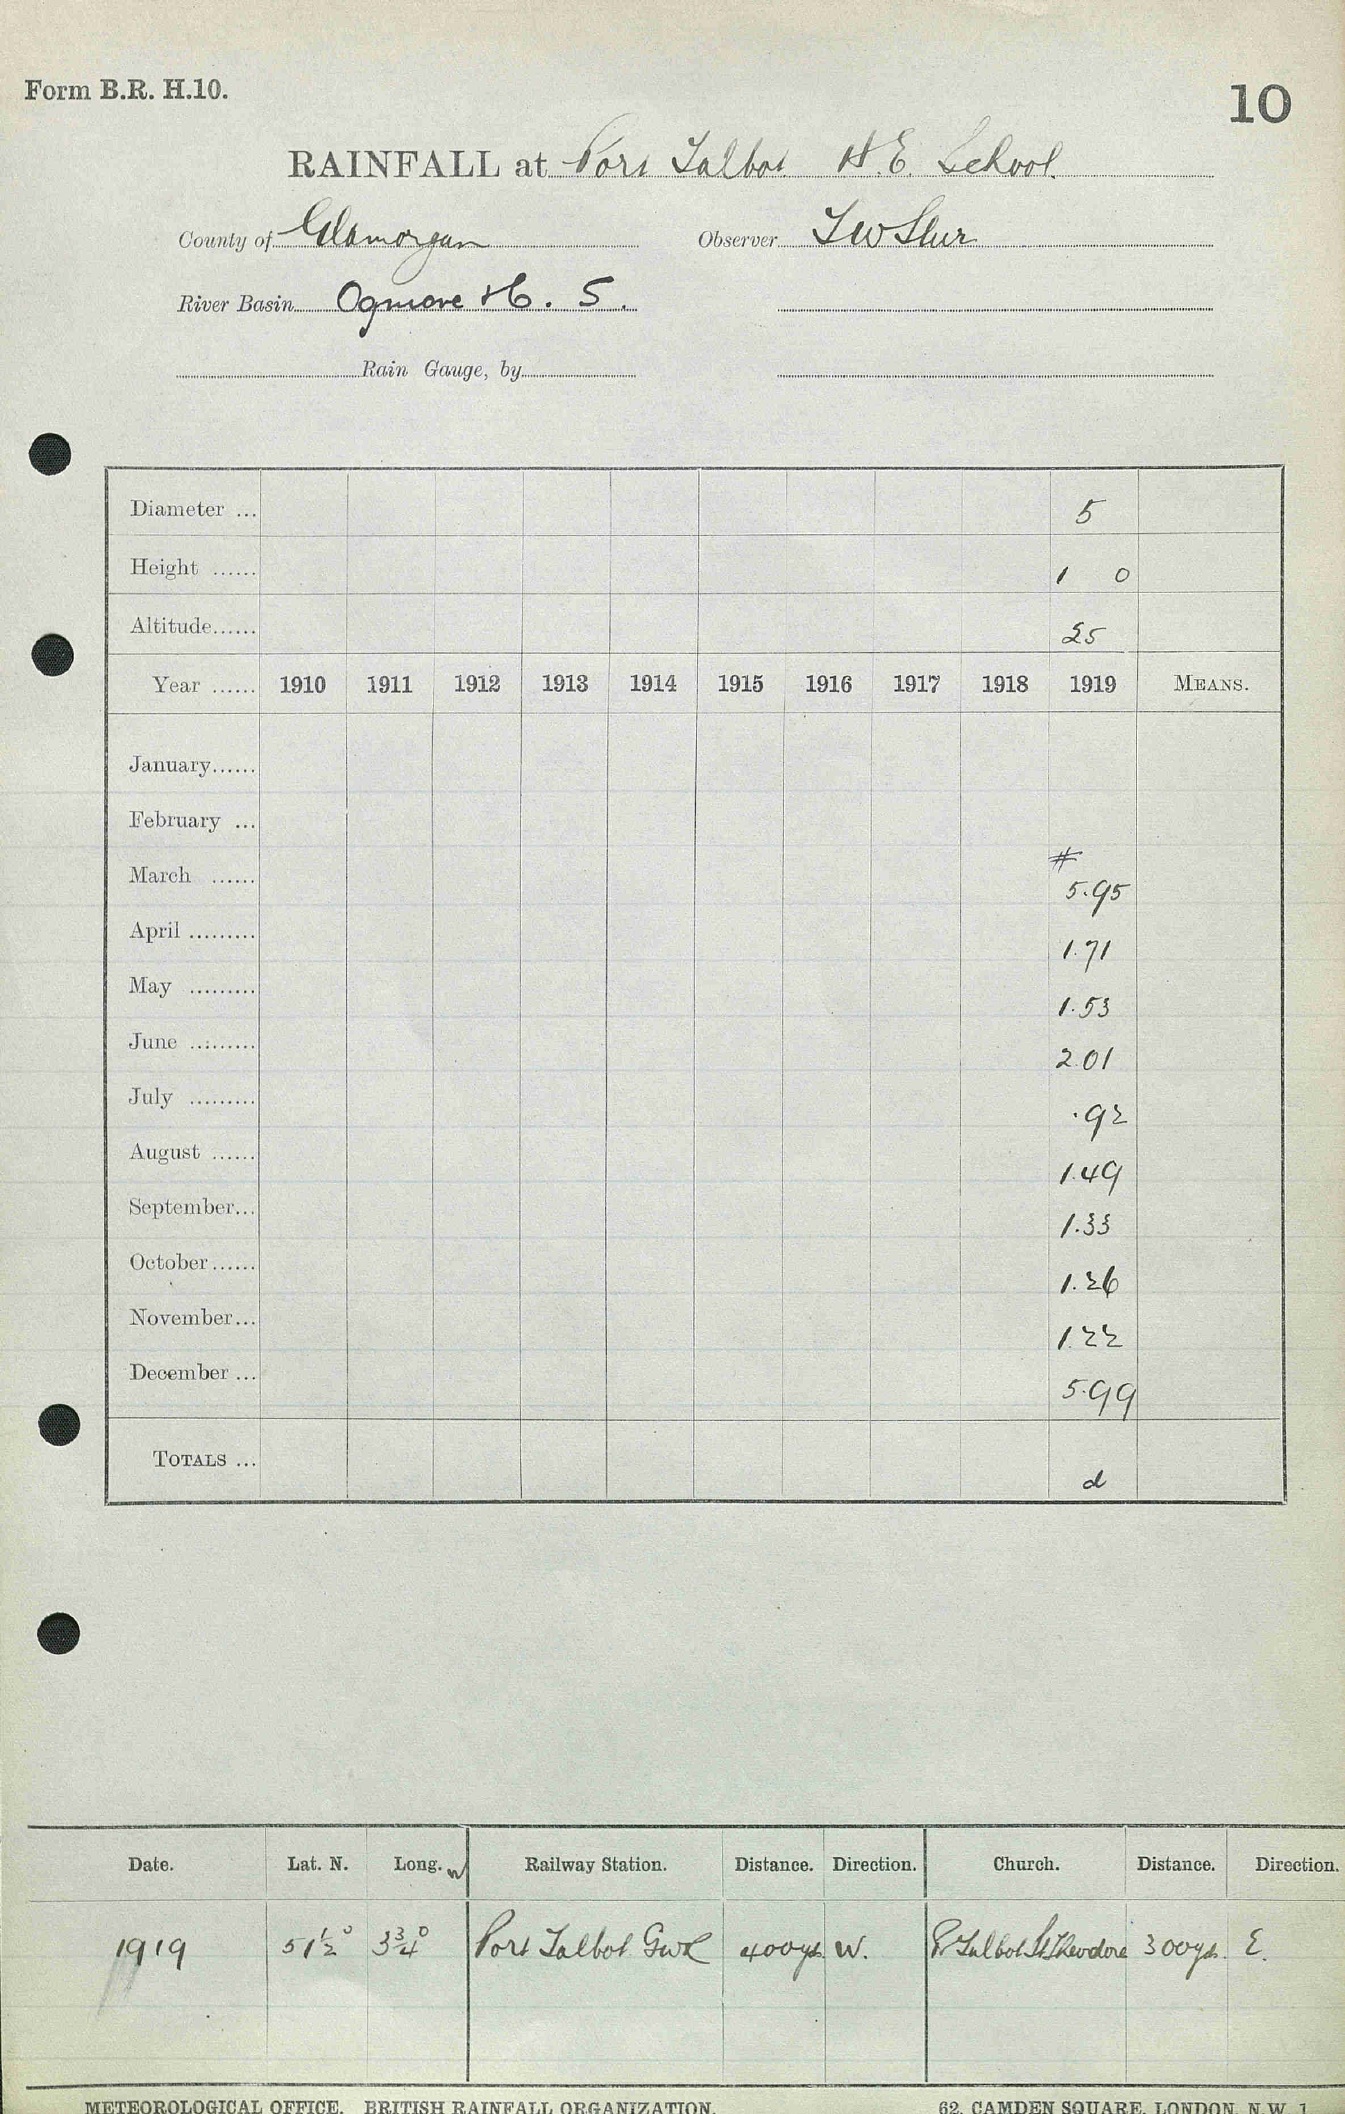 Form B.R. H.10.
10
RAINFALL at Port Talbot H.E. School
County of Glamorgan Observer
River Basin Ogmore H. S.
Rain Gauge, by
Diameter ... 5
Height ...... 1 0
Altitude...... 25
Year ...... 1910 1911 1912 1913 1914 1915 1916 1917 1918 1919 MEANS.
January......
February ...
#
March ...... 5.95
April ......... 1.71
May ......... 1.53
June ......... 2.01
July ......... .92
August ...... 1.49
September... 1.33
October...... 1.26
November... 1.22
December ... 5.99
TOTALS ... d
Date. Lat. N. Long. W Railway Station. Distance. Direction. Church. Distance. Direction.
1919 51½° 3¾° Port Talbot GWR 400yds W. P. Talbot St Theodore 300yds. E.
METEOROLOGICAL OFFICE. BRITISH RAINFALL ORGANIZATION. 62, CAMDEN SQUARE, LONDON, N.W. 1